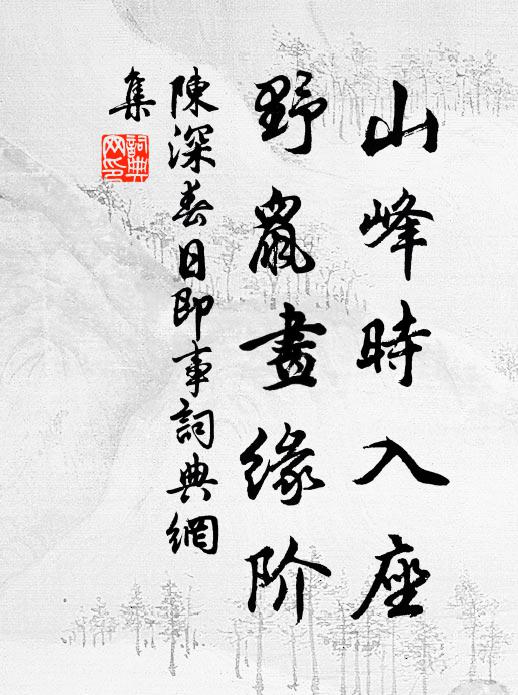 山峰時入座
野鼠晝緣阶
陳深春日即事詞典網
集
詞典
网印